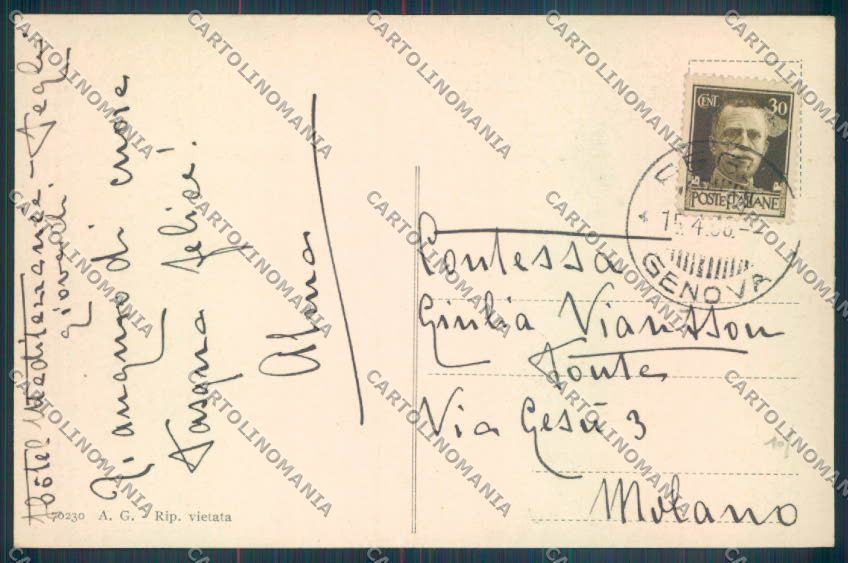 Hôtel Mediterranée - Pegli
giovedì.
T'auguro di cuore
Pasqua felice!
Alma
70230 A. G. - Rip. vietata
CENT. 30
POSTE ITALIANE
15.4.36.-
GENOVA
Contessa
Giulia Viansson
Ponte
Via Gesù 3
Milano
CARTOLINOMANIA